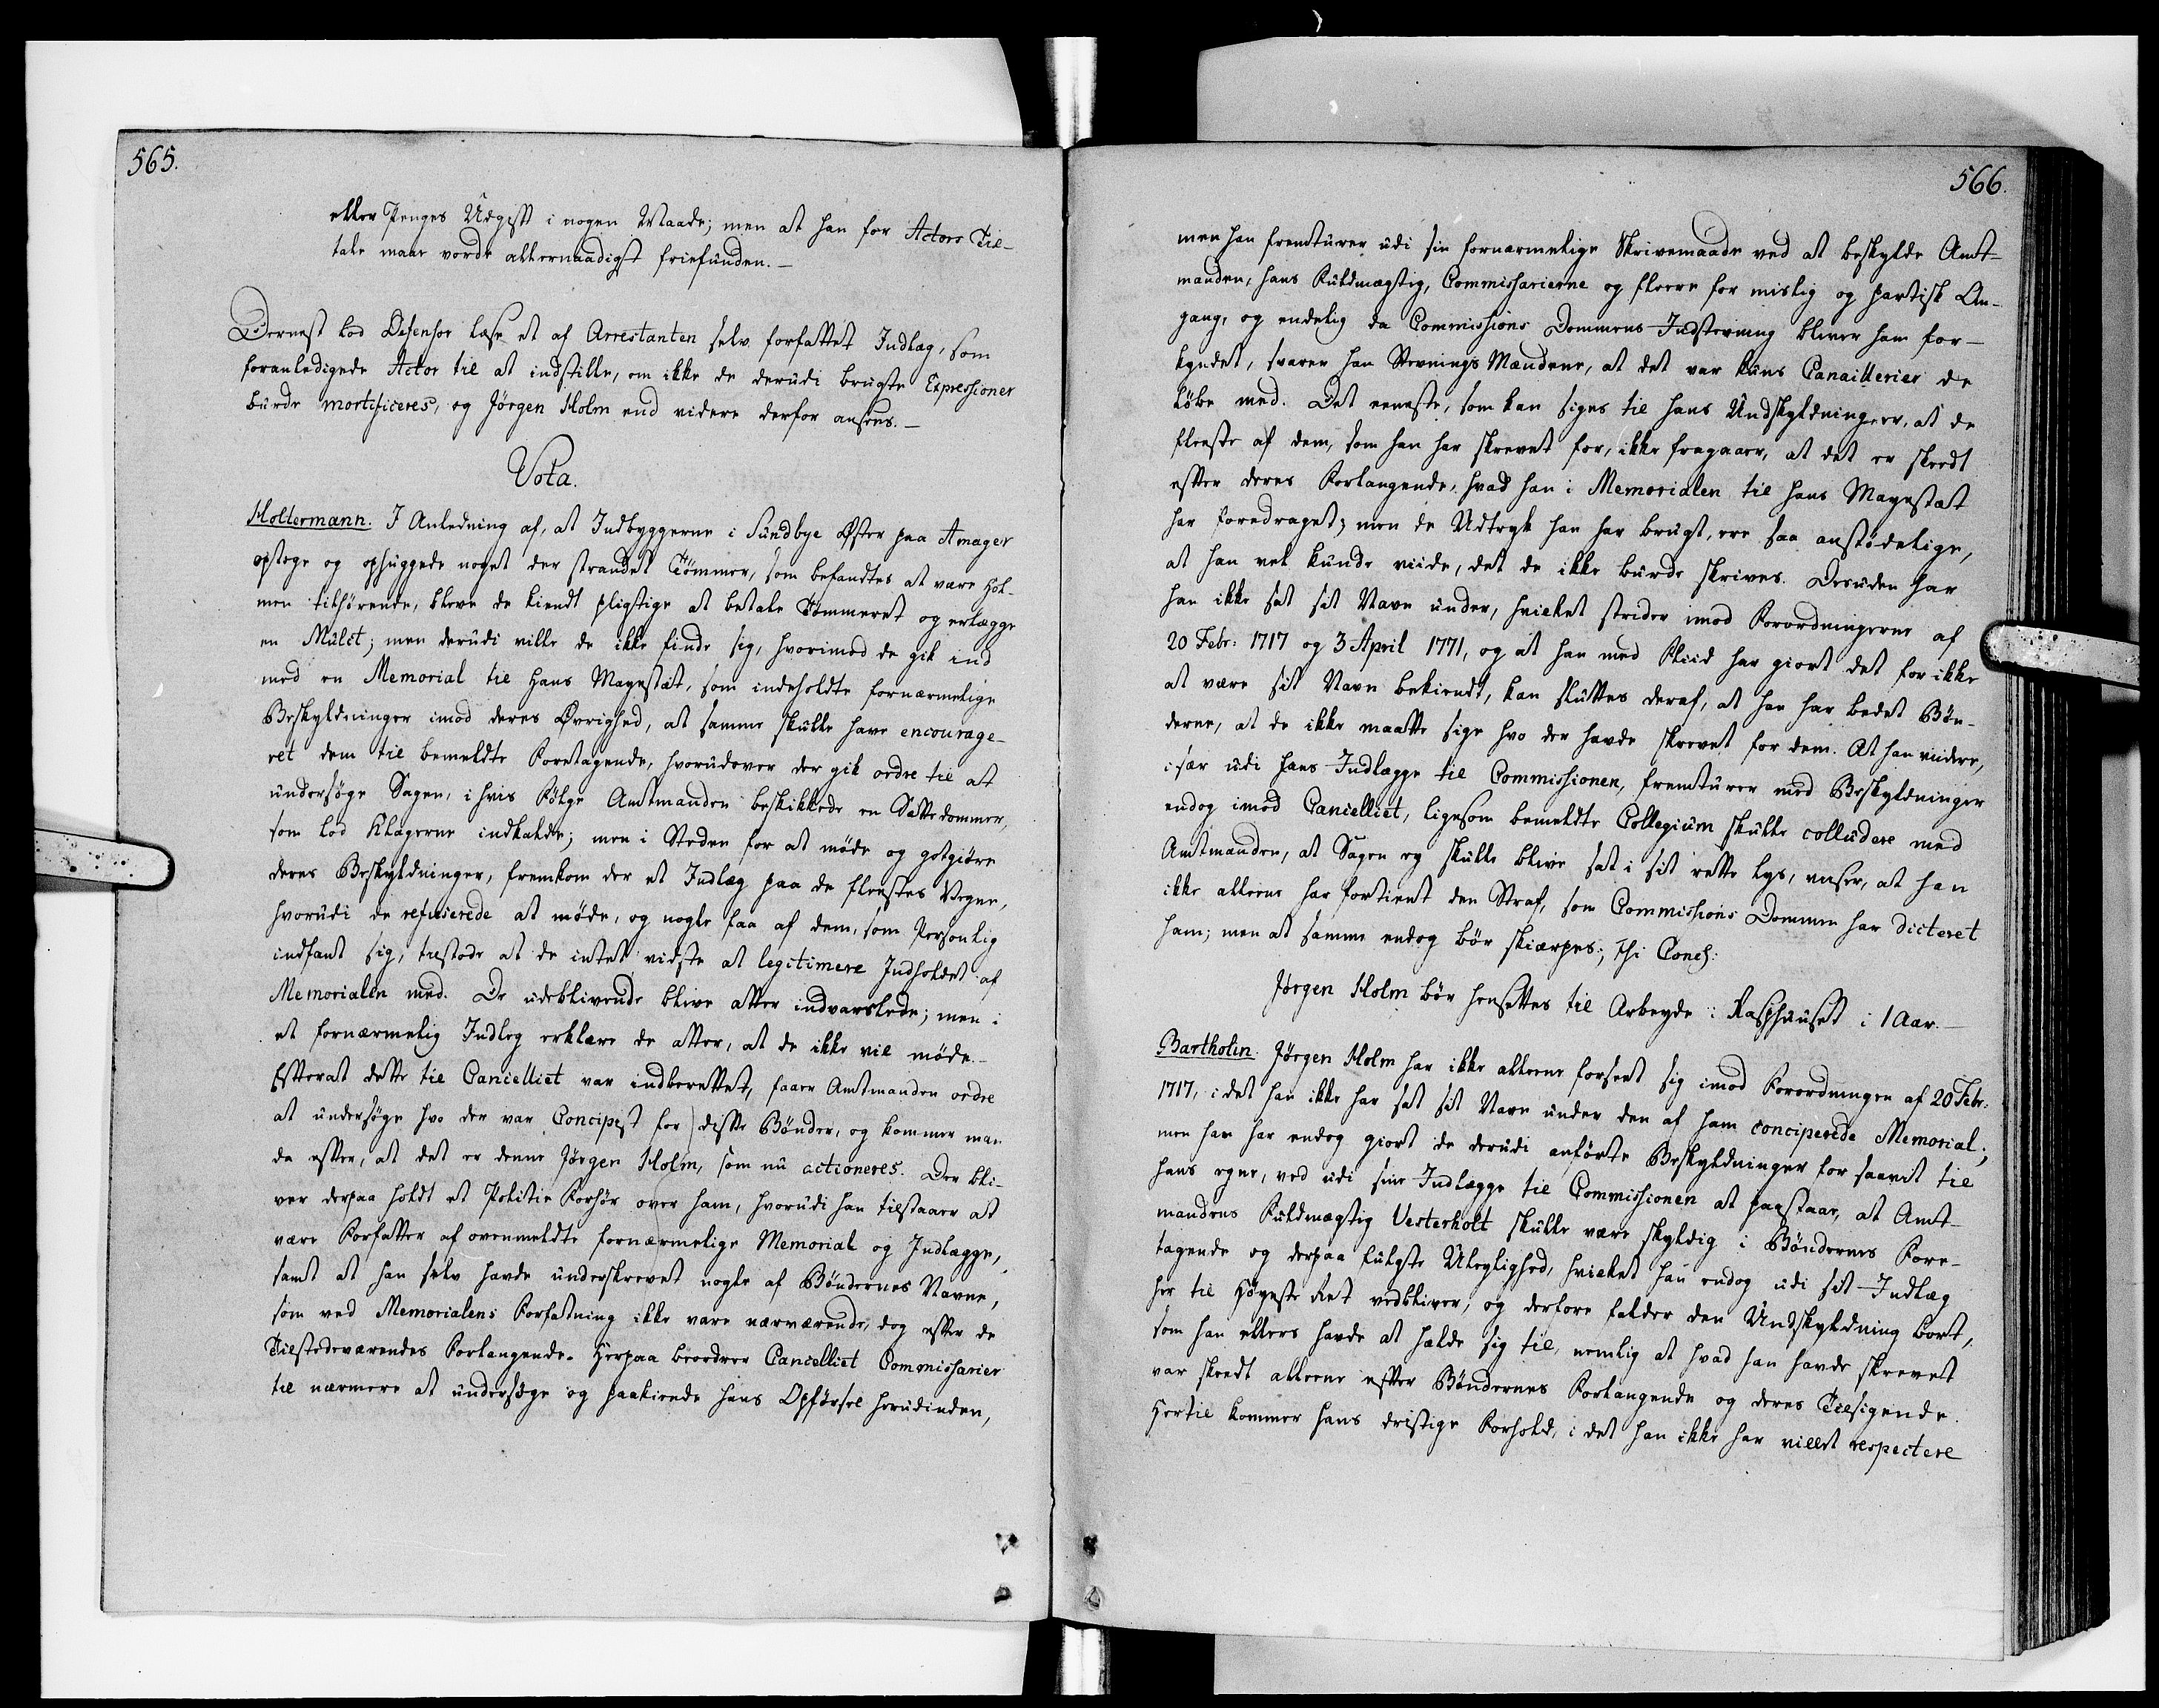 565.
eller Penges Udgift i nogen Maade; men at han for Actors Til-
tale maae vorde allernaadigst friefunden. –
Dernest lod Defensor læse et af Arrestanten selv forfattet Indlæg, som
foranledigede Actor til at indstille, om ikke de derudi brugte Expressioner
burde mortificeres, og Jörgen Holm end videre derfor ansees. –
Vota.
Holtermann. I Anledning af, at Indbyggerne i Sundbye Øster paa Amager
optoge og ophuggede noget der strandet Tömmer, som befandtes at være Hol-
men tilhörende, bleve de kiendt pligtige at betale Tömmeret og erlægge
en Mulct; men derudi ville de ikke finde sig, hvorimod de gik ind
med en Memorial til Hans Mayestæt, som indeholdte fornærmelige
Beskyldninger imod deres Øvrighed, at samme skulle have encourage-
ret dem til bemeldte Foretagende, hvorudover der gik ordre til at
undersöge Sagen, i hvis Fölge Amtmanden beskikkede en Sættedommer,
som lod Klagerne indkalde; men i Steden for at möde og gotgiöre
deres Beskyldninger, fremkom der et Indlæg paa de fleestes Vegne,
hvorudi de refuserede at möde, og nogle faa af dem, som Personlig
indfant sig, tilstode at de intet vidste at legitimere Indholdet af
Memorialen med. De udeblivende blive atter indvarslede; men i
et fornærmelig Indleg erklære de atter, at de ikke vil möde. –
Efterat dette til Cancelliet var indberettet, faaer Amtmanden ordre
at undersöge hvo der var Concipist for disse Bönder, og kommer man
da efter, at det er denne Jörgen Holm, som nu actioneres. Der bli-
ver derpaa holdt et Politie Forhör over ham, hvorudi han tilstaaer at
være Forfatter af ovenmeldte fornærmelige Memorial og Indlægge,
samt at han selv havde underskrevet nogle af Böndernes Navne,
som ved Memorialens Forfatning ikke vare nærværende, dog efter de
Tilstedeværendes Forlangende. Herpaa beordrer Cancelliet Commissarier
til nærmere at undersöge og paakiende hans Opförsel herudinden,
566.
men han fremturer udi sin fornærmelige Skrivemaade ved at beskylde Amt-
manden, hans Fuldmægtig, Commissarierne og fleere for mislig og partisk Om-
gang, og endelig da Commissions Dommens Indstevning bliver ham for-
kyndet, svarer han Stevnings Mændene, at det var kuns Canaillerier de
löbe med. Det eeneste, som kan siges til hans Undskyldning er, at de
fleeste af dem, som han har skrevet for, ikke fragaaer, at det er skeedt
efter deres Forlangende, hvad han i Memorialen til hans Mayestæt
har foredraget; men de Udtryk han har brugt, ere saa anstödelige,
at han vel kunde viide, det de ikke burde skrives. Desuden har
han ikke sat sit Navn under, hvilket strider imod Forordningerne af
20 Febr: 1717 og 3 April 1771, og at han med Fliid har giort det for ikke
at være sit Navn bekiendt, kan sluttes deraf, at han har bedet Bön-
derne, at de ikke maatte sige hvo der havde skrevet for dem. At han viidere,
i sær udi hans Indlægge til Commissionen, fremturer med Beskyldninger
endog imod Cancelliet, ligesom bemeldte Collegium skulle colludere med
Amtmanden, at Sagen ey skulle blive sat i sit rette Lys, viiser, at han
ikke alleene har fortient den Straf, som Commissions Dommen har dicteret
ham; men at samme endog bör skiærpes; thi Conch:
Jörgen Holm bör hensettes til Arbeyde i Rasphuuset i 1 Aar. –
Bartholin. Jörgen Holm har ikke alleene forseet sig imod Forordningen af 20 Febr:
1717, i det han ikke har sat sit Navn under den af ham conciperede Memorial;
men han har endog giort de derudi anförte Beskyldninger for saavit til
hans egne, ved udi sine Indlægge til Commissionen at paastaae, at Amt-
mandens Fuldmægtig Vesterholt skulle være skyldig i Böndernes Fore-
tagende og derpaa fulgte Uleylighed, hvilket han endog udi sit Indlæg
her til Höyeste Ret vedbliver, og derfore falder den Undskyldning bort,
som han ellers havde at holde sig til, nemlig at hvad han havde skrevet
var skeedt alleene efter Böndernes Forlangende og deres Tilsigende.
Hertil kommer hans dristige Forhold, i det han ikke har villet respectere